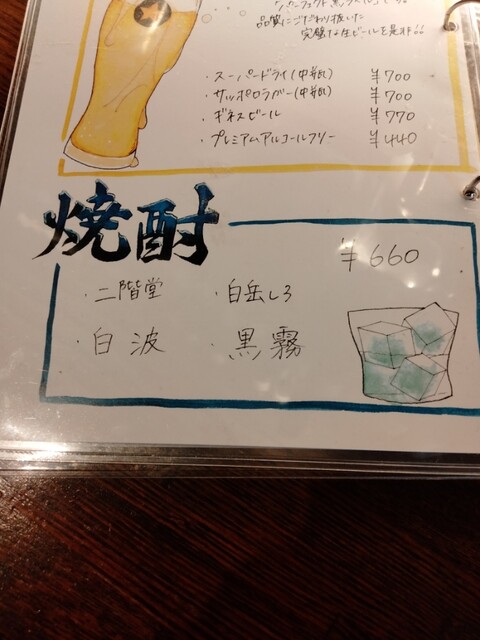 「パーフェクト黒ラベル」です。
品質にこだわり抜いた
完璧な生ビールを是非!!
・スーパードライ(中瓶) ¥700
・サッポロラガー(中瓶) ¥700
・ギネスビール ¥770
・プレミアムアルコールフリー ¥440
焼酎
¥660
・二階堂 ・白岳しろ
・白波 ・黒霧